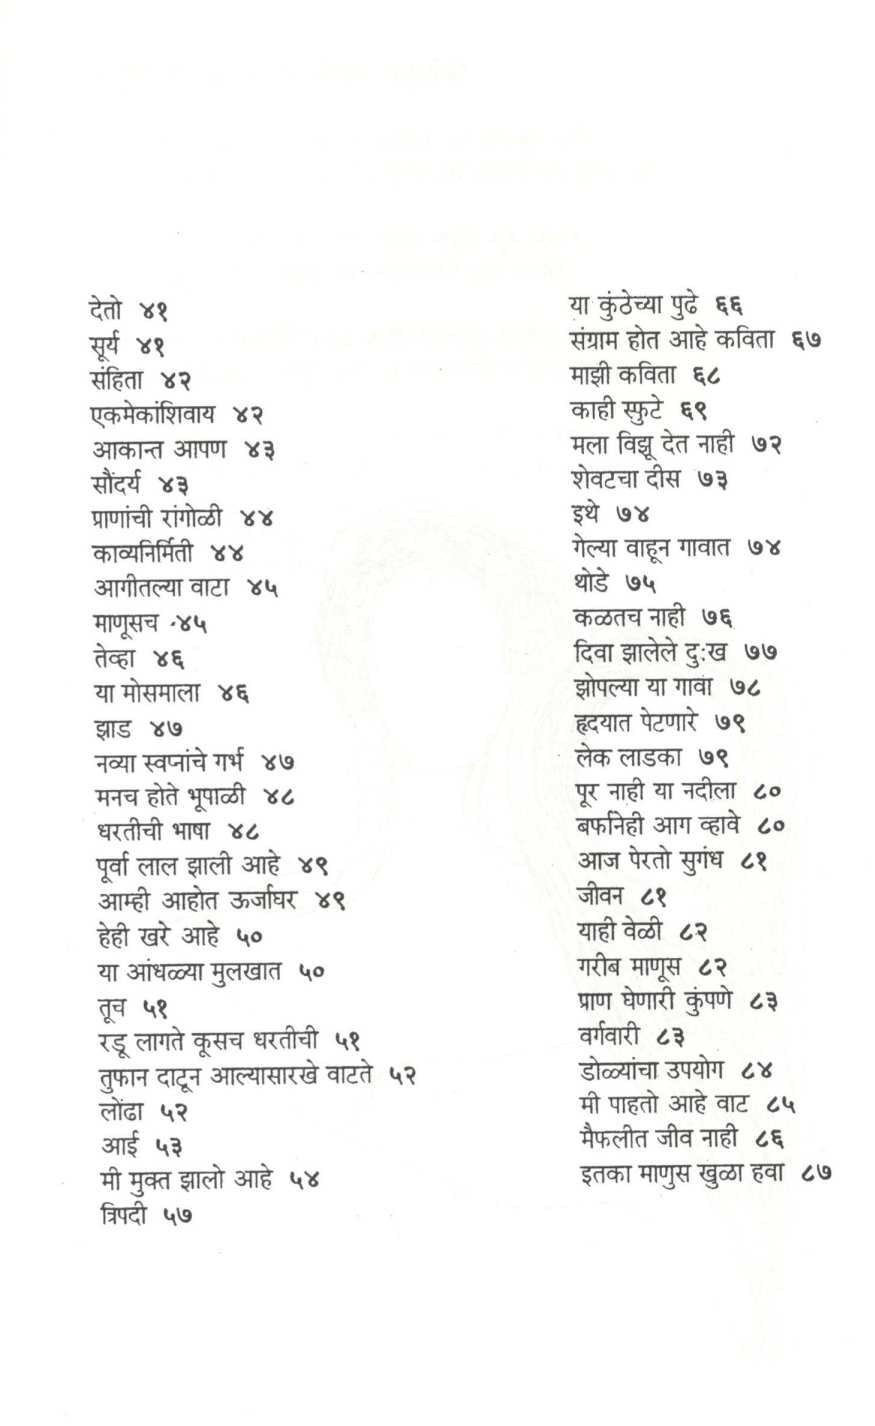 देतो ४१
सूर्य ४१
संहिता ४२
एकमेकांशिवाय ४२
आकान्त आपण ४३
सौंदर्य ४३
प्राणांची रांगोळी ४४
काव्यनिर्मिती ४४
आगीतल्या वाटा ४५
माणूसच ४५
तेव्हा ४६
या मोसमाला ४६
झाड ४७
नव्या स्वप्नांचे गर्भ ४७
मनच होते भूपाळी ४८
धरतीची भाषा ४८
पूर्वा लाल झाली आहे ४९
आम्ही आहोत ऊर्जाघर ४९
हेही खरे आहे ५०
या आंधळ्या मुलखात ५०
तूच ५१
रडू लागते कूसच धरतीची ५१
तुफान दाटून आल्यासारखे वाटते ५२
लोंढा ५२
आई ५३
मी मुक्त झालो आहे ५४
त्रिपदी ५७
या कुंठेच्या पुढे ६६
संग्राम होत आहे कविता ६७
माझी कविता ६८
काही स्फुटे ६९
मला विझू देत नाही ७२
शेवटचा दीस ७३
इथे ७४
गेल्या वाहून गावात ७४
थोडे ७५
कळतच नाही ७६
दिवा झालेले दुःख ७७
झोपल्या या गावा ७८
हृदयात पेटणारे ७९
लेक लाडका ७९
पूर नाही या नदीला ८०
बर्फानेही आग व्हावे ८०
आज पेरतो सुगंध ८१
जीवन ८१
याही वेळी ८२
गरीब माणूस ८२
प्राण घेणारी कुंपणे ८३
वर्गवारी ८३
डोळ्यांचा उपयोग ८४
मी पाहतो आहे वाट ८५
मैफलीत जीव नाही ८६
इतका माणुस खुळा हवा ८७